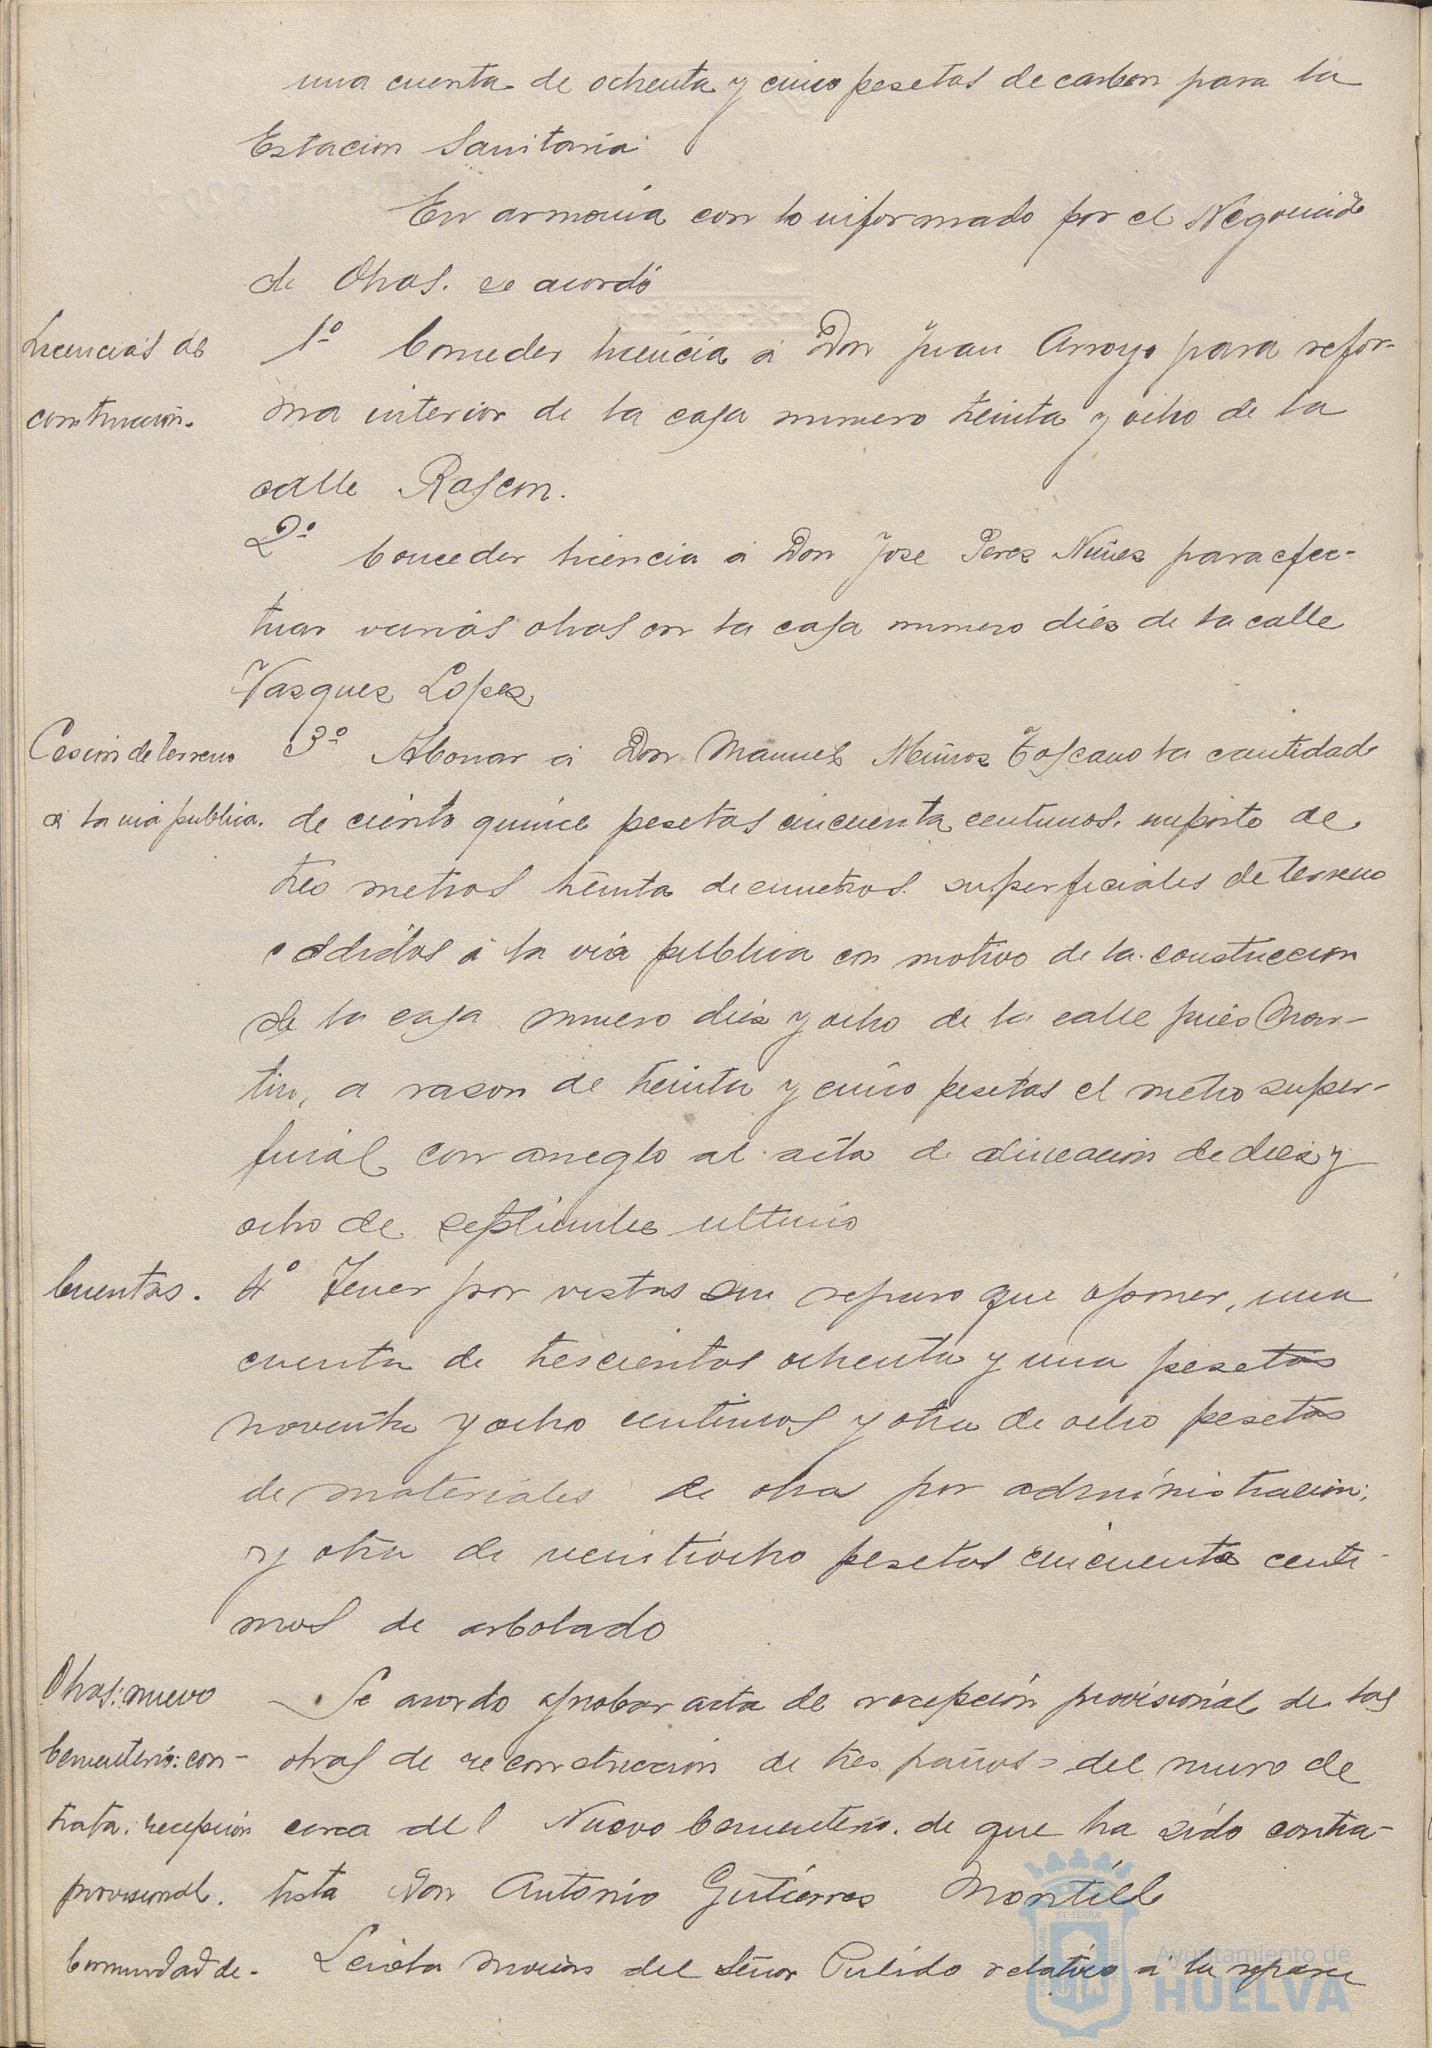 una cuenta de ochenta y cinco pesetas de carbon para la
Estacion Sanitaria
En armonia con lo informado por el Negociado
de Obras. se acordó
Licencias de
construccion.
1º Conceder licencia á Don Juan Arroyo para refor-
ma interior de la casa numero treinta y ocho de la
calle Rascon.
2º Conceder licencia á Don Jose Peres Nuñes para efec-
tuar varias obras en la casa numero dies de la calle
Vasques Lopes
Cesion de terreno
a la via publica.
3º Abonar á Don Manuel Muños Toscano la cantidad
de ciento quince pesetas cincuenta centimos. importe de
tres metros treinta decimetros superficiales de terreno
cedidos á la via publica con motivo de la construccion
de la casa numero dies y ocho de la calle
tin, a rason de treinta y cinco pesetas el metro super-
ficial con arreglo al acta de alineacion de dies y
ocho de septiembre ultimo
Cuentas.
4º Tener por vistas sin reparo que oponer, una
cuenta de trescientas ochenta y una pesetas
noventa y ocho centimos y otra de ocho pesetas
de materiales de obra por administracion;
y otra de veintiocho pesetas cincuenta centi-
mos de arbolado
Obras: nuevo
Cementerio: con-
trata: recepción
provisional.
Se acordo aprobar acta de recepción provisional de las
obras de reconstruccion de tres paños del muro de
cerca del Nuevo Cementerio. de que ha sido contra-
tista Don Antonio Gutierres Montiel
Comunidad de-
Leida mocion del Señor Pulido relativa á la
Ayuntamiento de
HUELVA